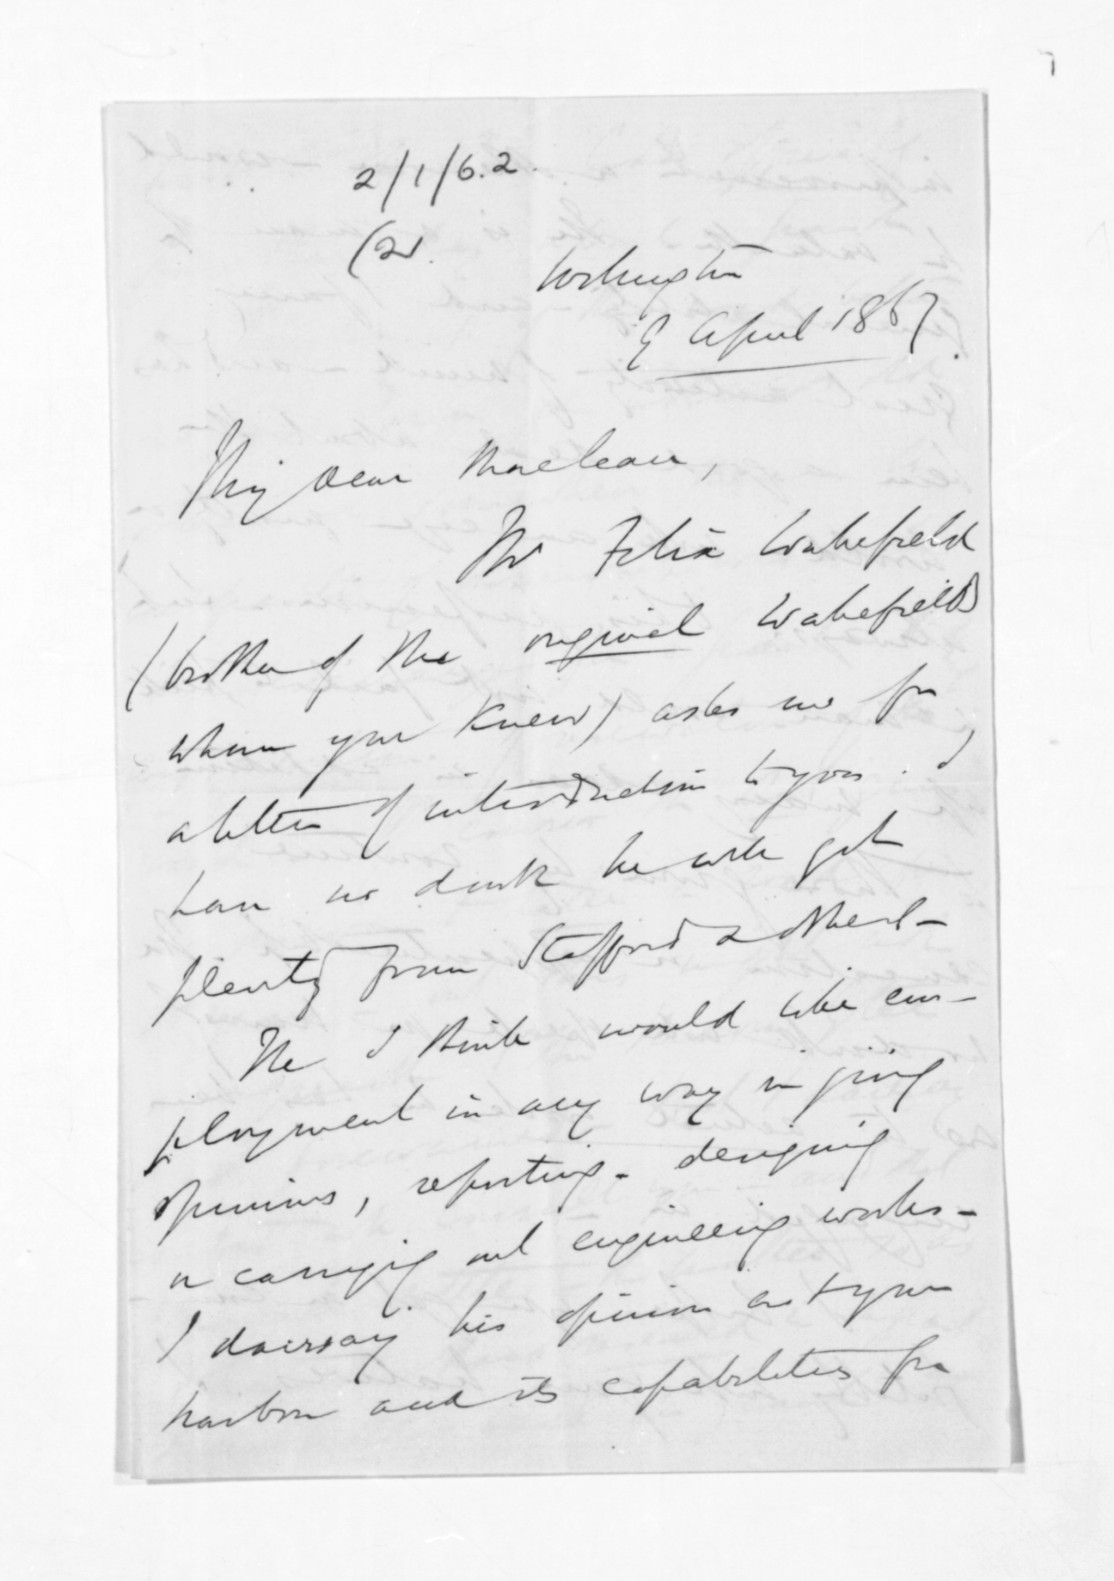 2/1/6.2.
(21.
Wellington
9 April 1867.
My Dear Maclean,
Mr Felix Wakefield
(brother of the original Wakefields
whom you knew) asks me for
a letter of introduction to you. I
have no doubt he will get
plenty from Stafford & others -
He I think would like em-
ployment in any way in giving
opinions, reporting - designing
or carrying out engineering works -
I daresay his opinion as to your
harbor and its capabilities for